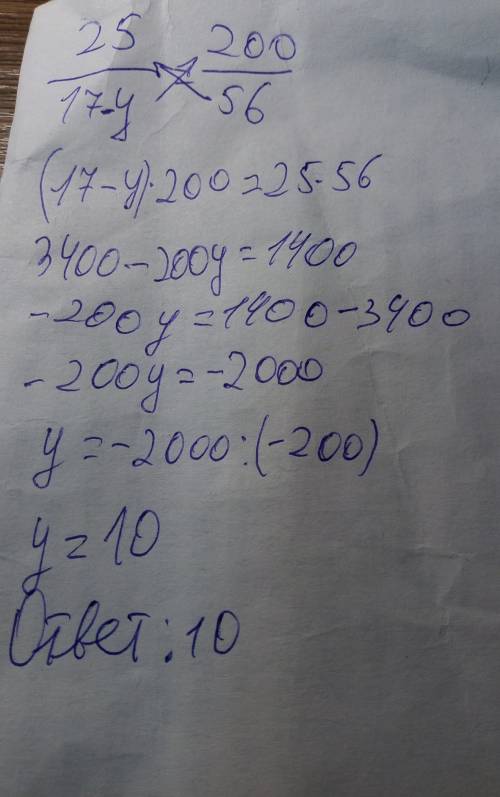 25 200
17-y 56
(17-y)·200=25·56
3400-200y=1400
-200y=1400-3400
-200y=-2000
y=-2000:(-200)
y=10
Ответ:10